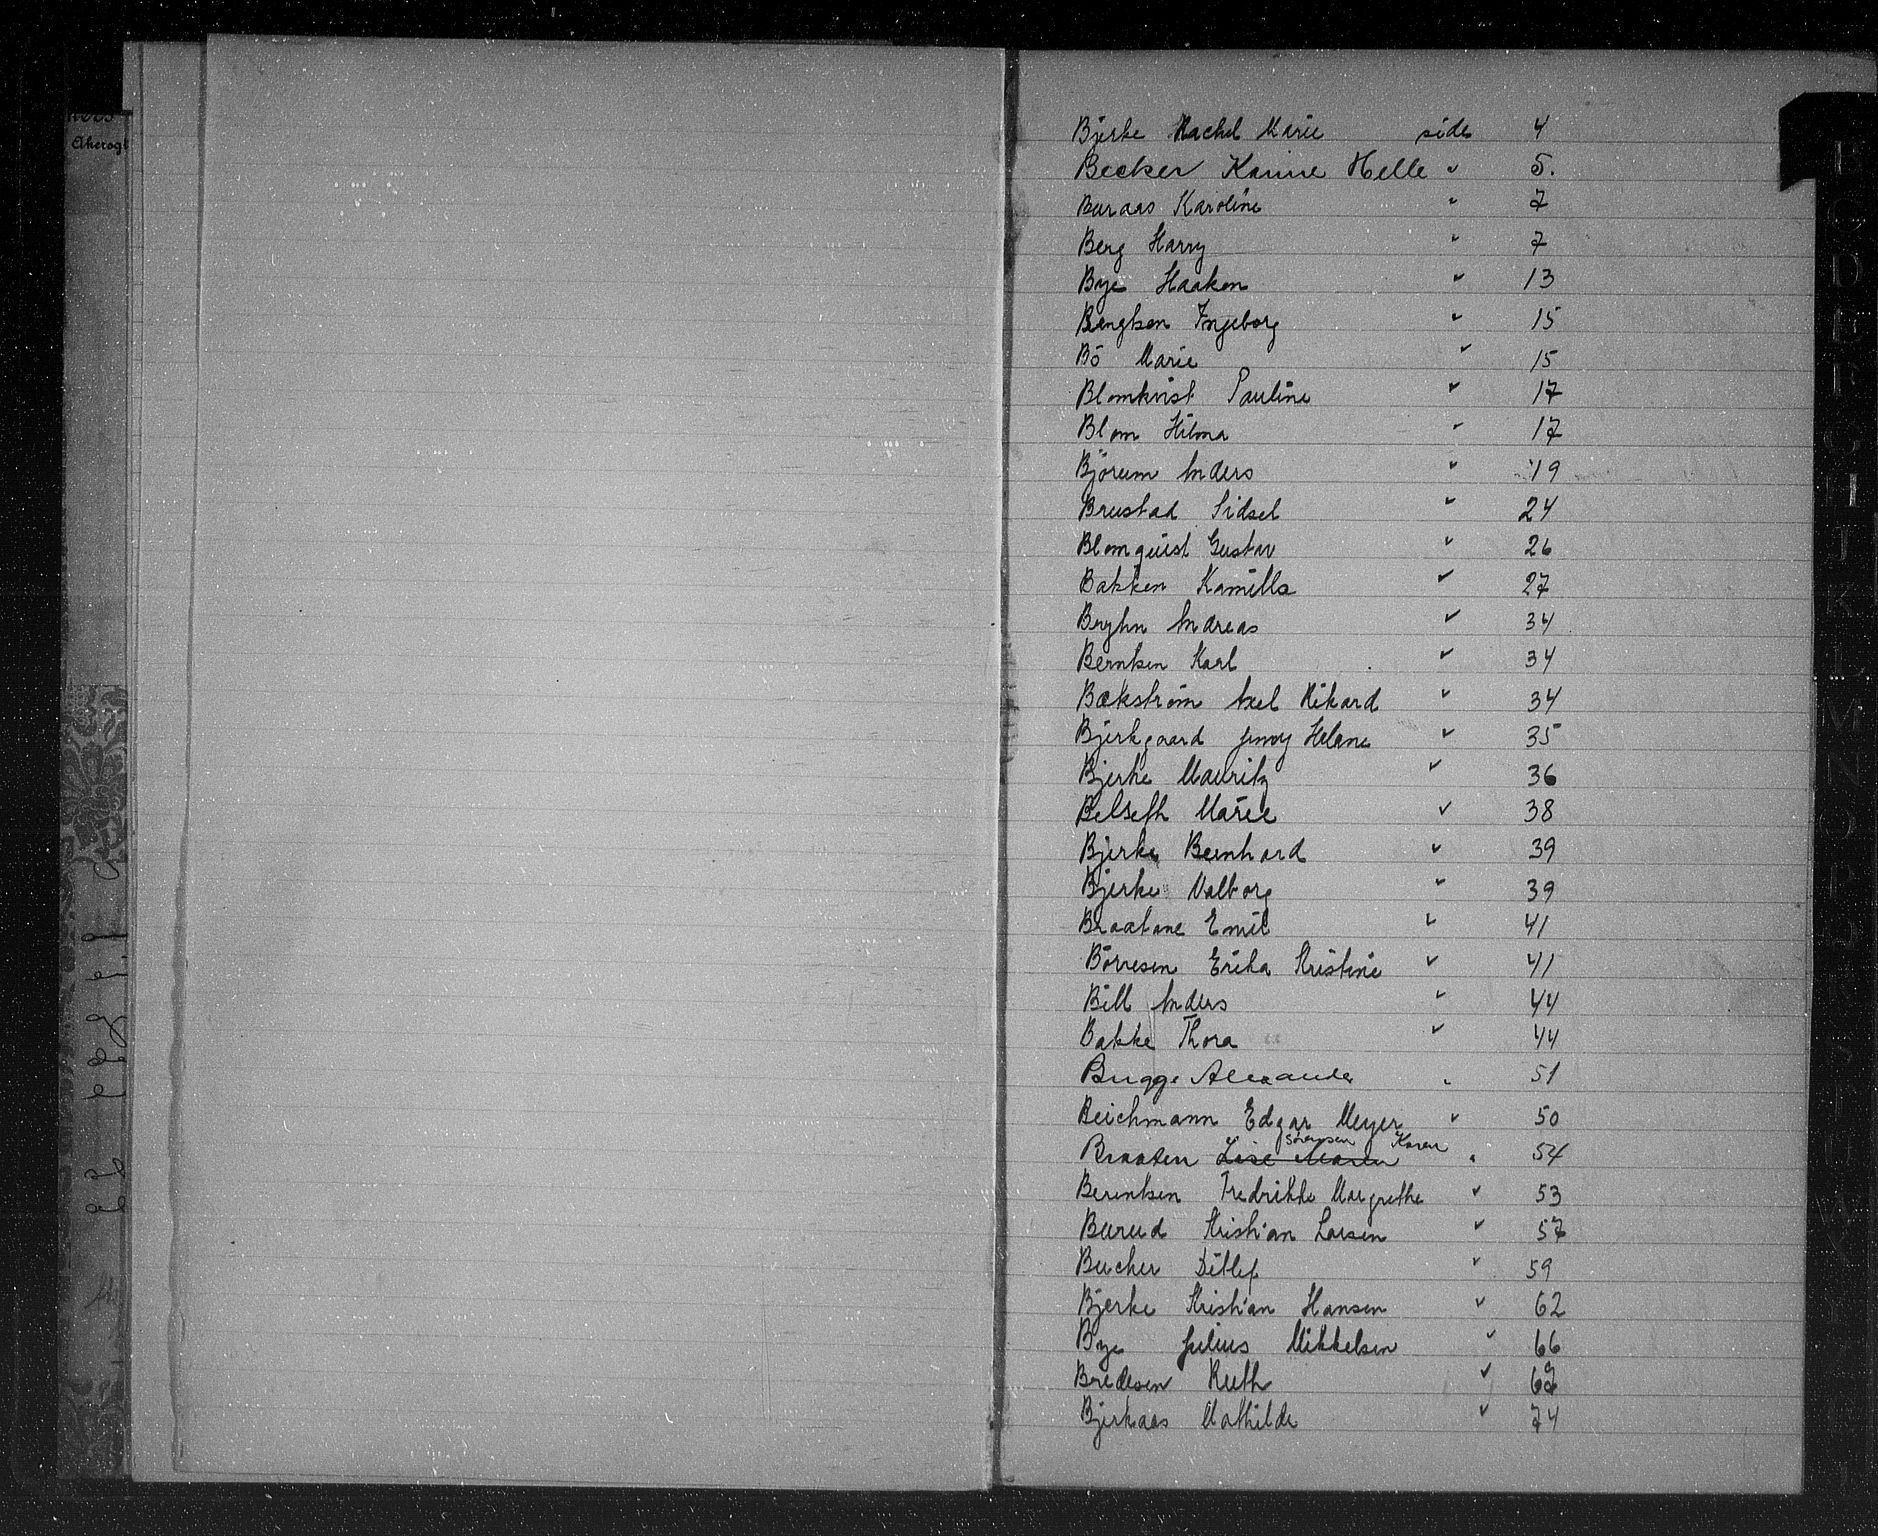 Akersgt
Bjerke Rachel Marie side 4
Becker Karine Helle " 5.
Buraas Karoline " 7
Berg Harry " 7
Bye Haakon " 13
Bengtson Ingeborg " 15
Bö Marie " 15
Blomkvist Pauline " 17
Blom Hilma " 17
Björum Anders " 19
Brustad Sidsel " 24
Blomquist Gustav " 26
Bakken Kamilla " 27
Bryhn Andreas " 34
Berntsen Karl " 34
Bækström Axel Rikard " 34
Bjerkgaard Jenny Helene " 35
Bjerke Mauritz " 36
Belseth Marie " 38
Bjerke Bernhard " 39
Bjerke Valborg " 39
Braatane Emil " 41
Börresen Erika Kristine " 41
Bill Anders " 44
Bakke Thora " 44
Bugge Alexander " 51
Beichmann Edgar Meyer " 50
Braaten Lise Maren Sörensen Karen " 54
Berentsen Fredrikke Margrethe " 53
Burud Kristian Larsen " 57
Bucher Ditlef " 59
Bjerke Kristian Hansen " 62
Bye Julius Mikkelsen " 66
Bredesen Ruth "
Bjerkaas Mathilde " 74